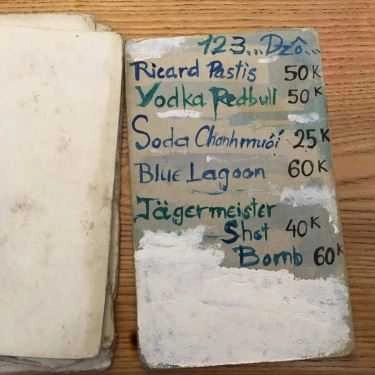 123...Dzô...
Ricard Pastis 50K
Vodka Redbull 50K
Soda Chanh muối 25K
Blue Lagoon 60K
Jägermeister
Shot 40K
Bomb 60K